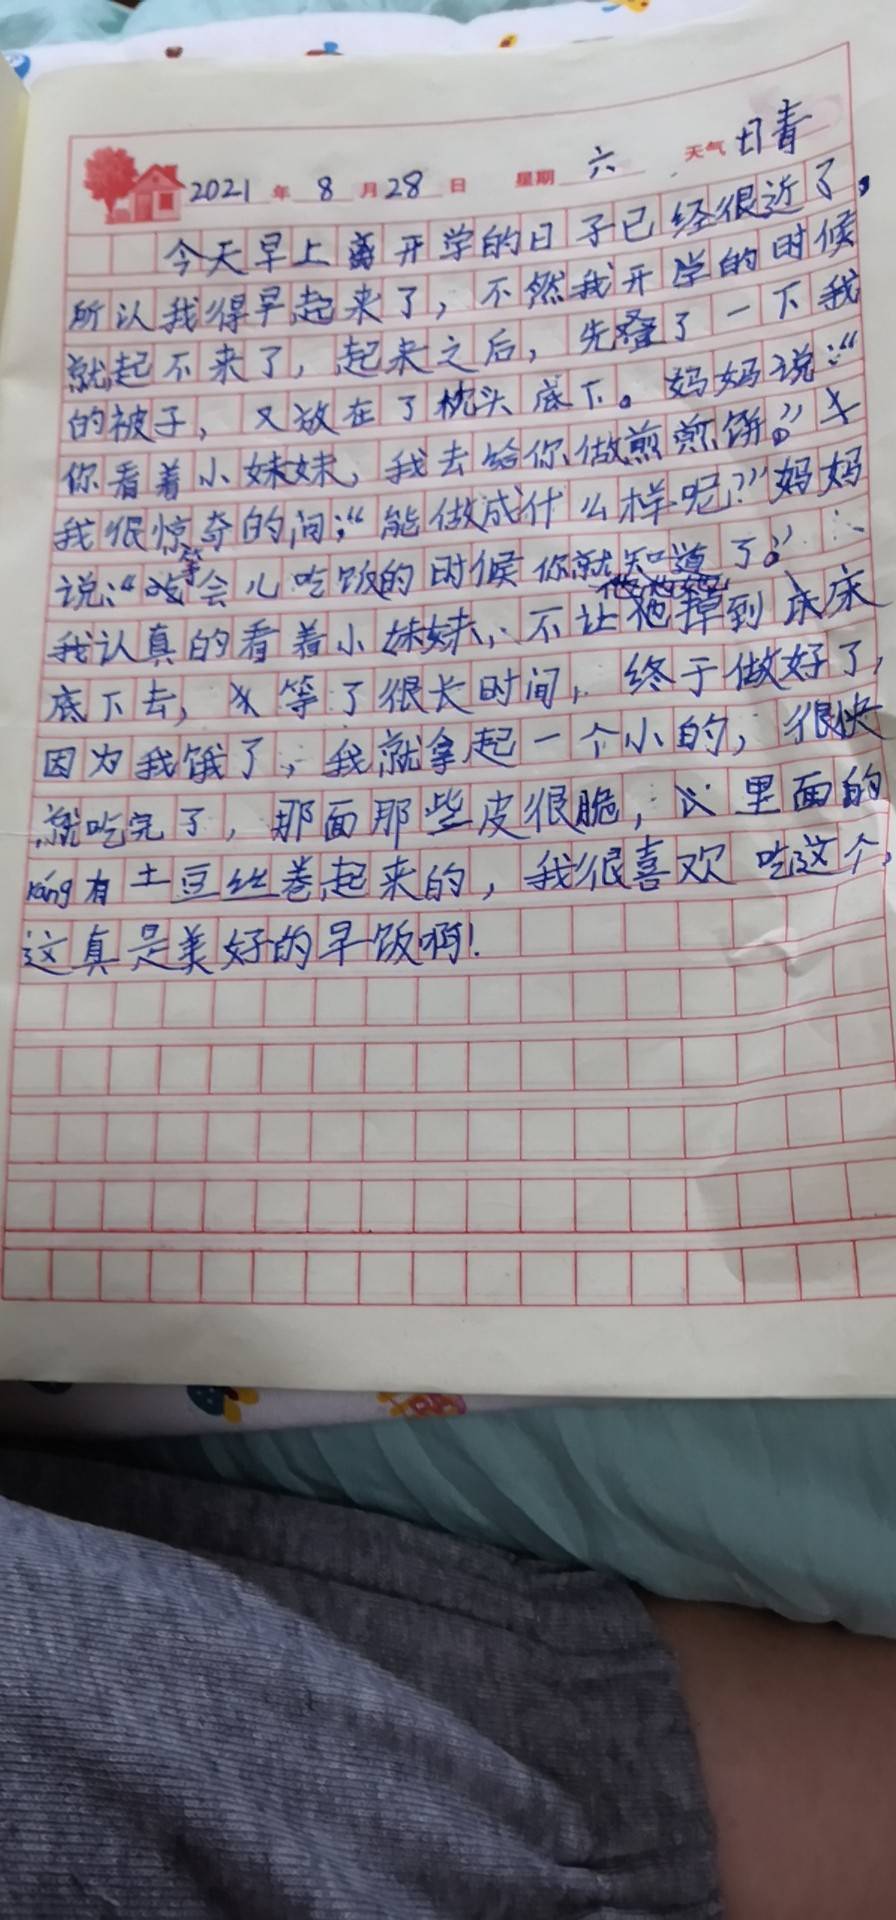 2021年8月28日 星期六 天气晴
今天早上离开学的日子已经很近了，
所以我得早起来了，不然我开学的时候
就起不来了，起来之后，先叠了一下我
的被子，又放在了枕头底下。妈妈说：“
你看着小妹妹，我去给你做煎煎饼。”
我很惊奇的问：“能做成什么样呢？”妈妈
说：“等会儿吃饭的时候你就知道了。”
我认真的看着小妹妹，不让她掉到床
底下去，等了很长时间，终于做好了，
因为我饿了，我就拿起一个小的，很快
就吃完了，那面那些皮很脆，里面的
有土豆丝卷起来的，我很喜欢吃这个，
这真是美好的早饭啊！